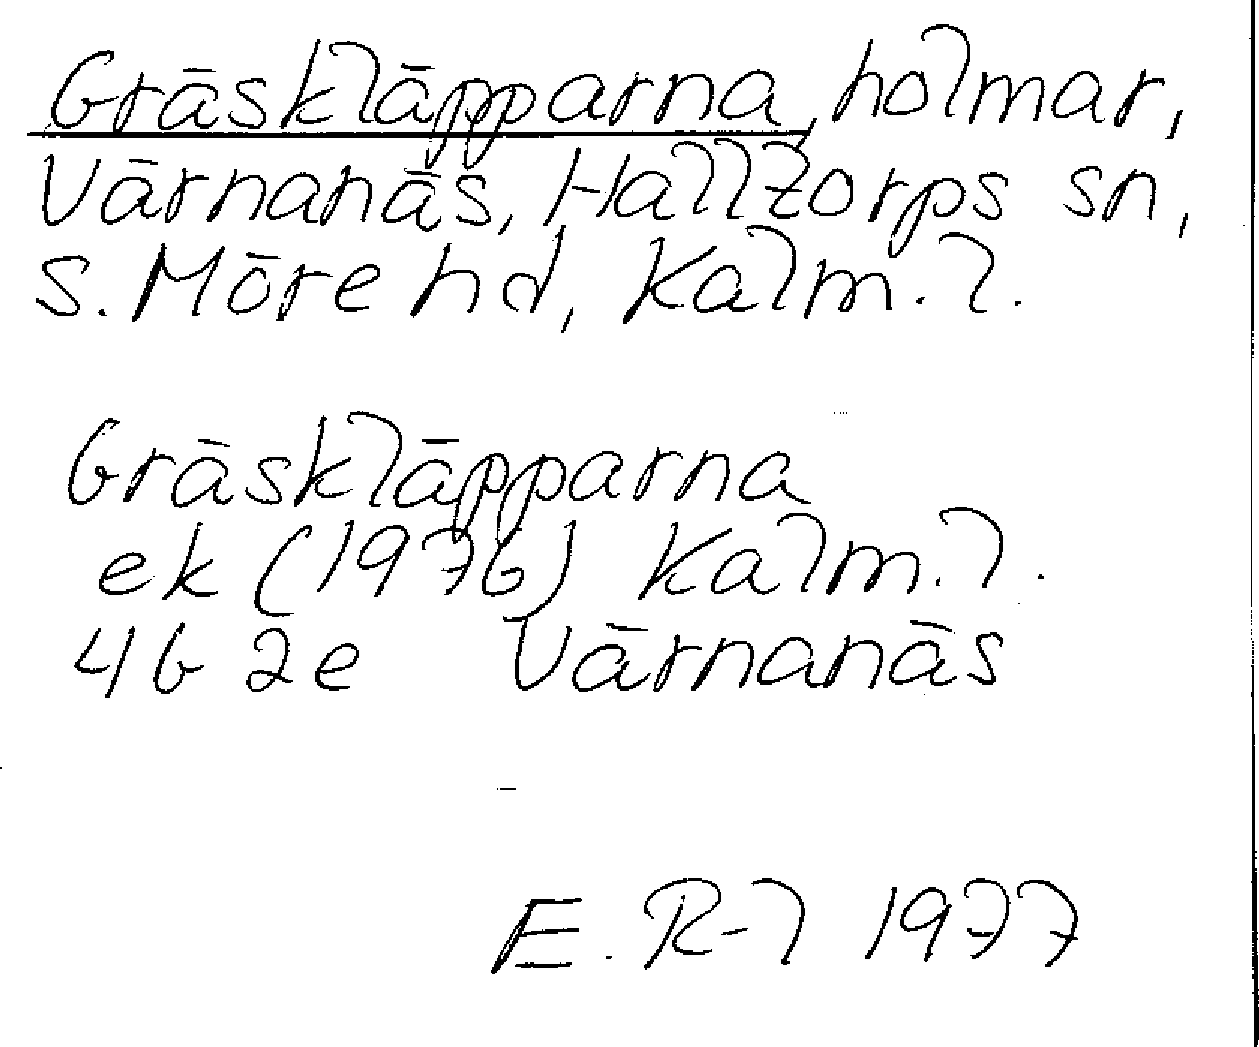 Gräskläpparna, holmar,
Värnanäs, Halltorps sn,
S. Möre hd, Kalm. l.
Gräskläpparna
ek (1976) Kalm. l.
4G 2e Värnanäs
E. R-l 1977